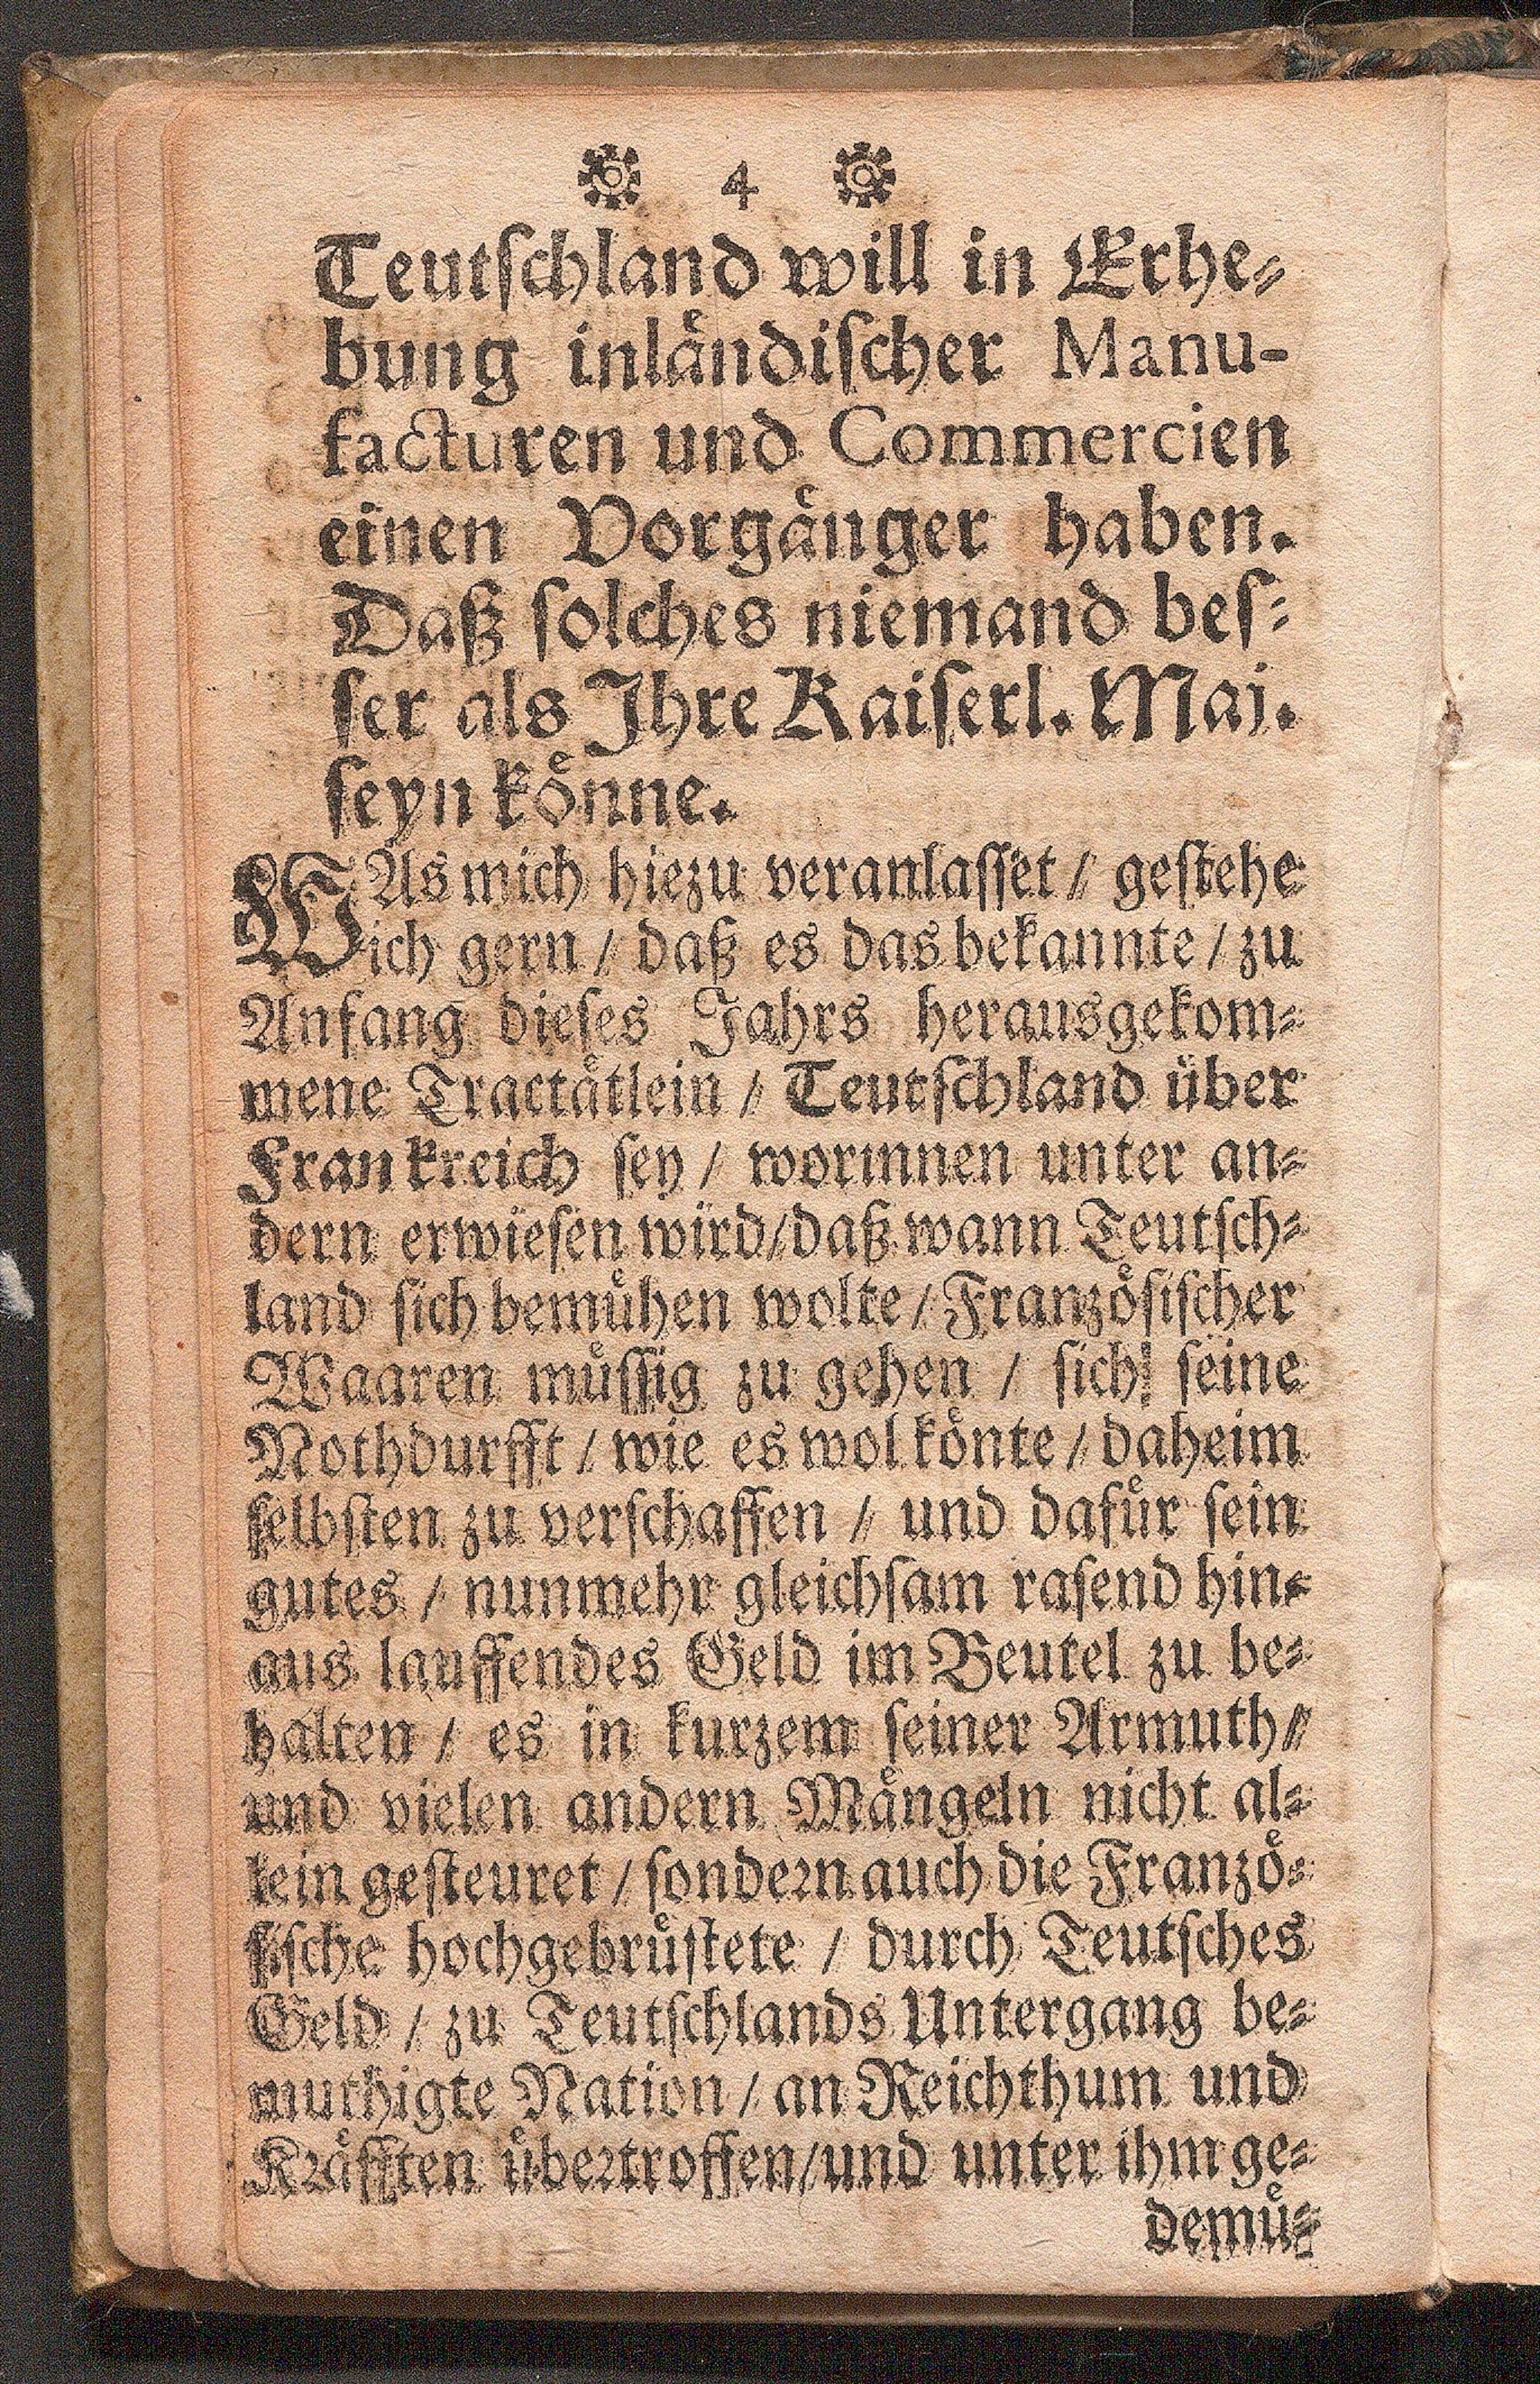 4
Teutſchland will in Erhe⸗
bung inlaͤndiſcher Manu-
facturen und Commercien
einen Vorgaͤnger haben.
Daß ſolches niemand beſ⸗
ſer als Ihre Kaiſerl. Maj.
ſeyn koͤnne.
WAs mich hiezu veranlaſſet / geſtehe
ich gern / daß es das bekannte / zu
Anfang dieſes Jahrs herausgekom⸗
mene Tractaͤtlein / Teutſchland uͤber
Frankreich ſey / worinnen unter an⸗
dern erwieſen wird / daß wann Teutſch⸗
land ſich bemuͤhen wolte / Franzoͤſiſcher
Waaren muͤſſig zu gehen / ſich ſeine
Nothdurfft / wie es wol koͤnte / daheim
ſelbſten zu verſchaffen / und dafuͤr ſein
gutes / nunmehr gleichſam raſend hin⸗
aus lauffendes Geld im Beutel zu be⸗
halten / es in kurzem ſeiner Armuth /
und vielen andern Maͤngeln nicht al⸗
lein geſteuret / ſondern auch die Franzoͤ⸗
ſiſche hochgebruͤſtete / durch Teutſches
Geld / zu Teutſchlands Untergang be⸗
muthigte Nation / an Reichthum und
Kraͤfften uͤbertroffen / und unter ihm ge⸗
demuͤ⸗